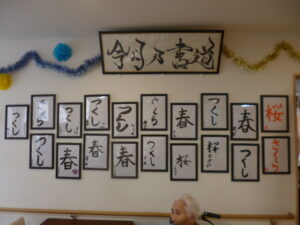 今月乃書道
さくら
つくし
つくし
さくら
つくし
春
つくし
春
桜
つくし
つくし
春
春
春
つくし
桜
桜
つくし
さくら